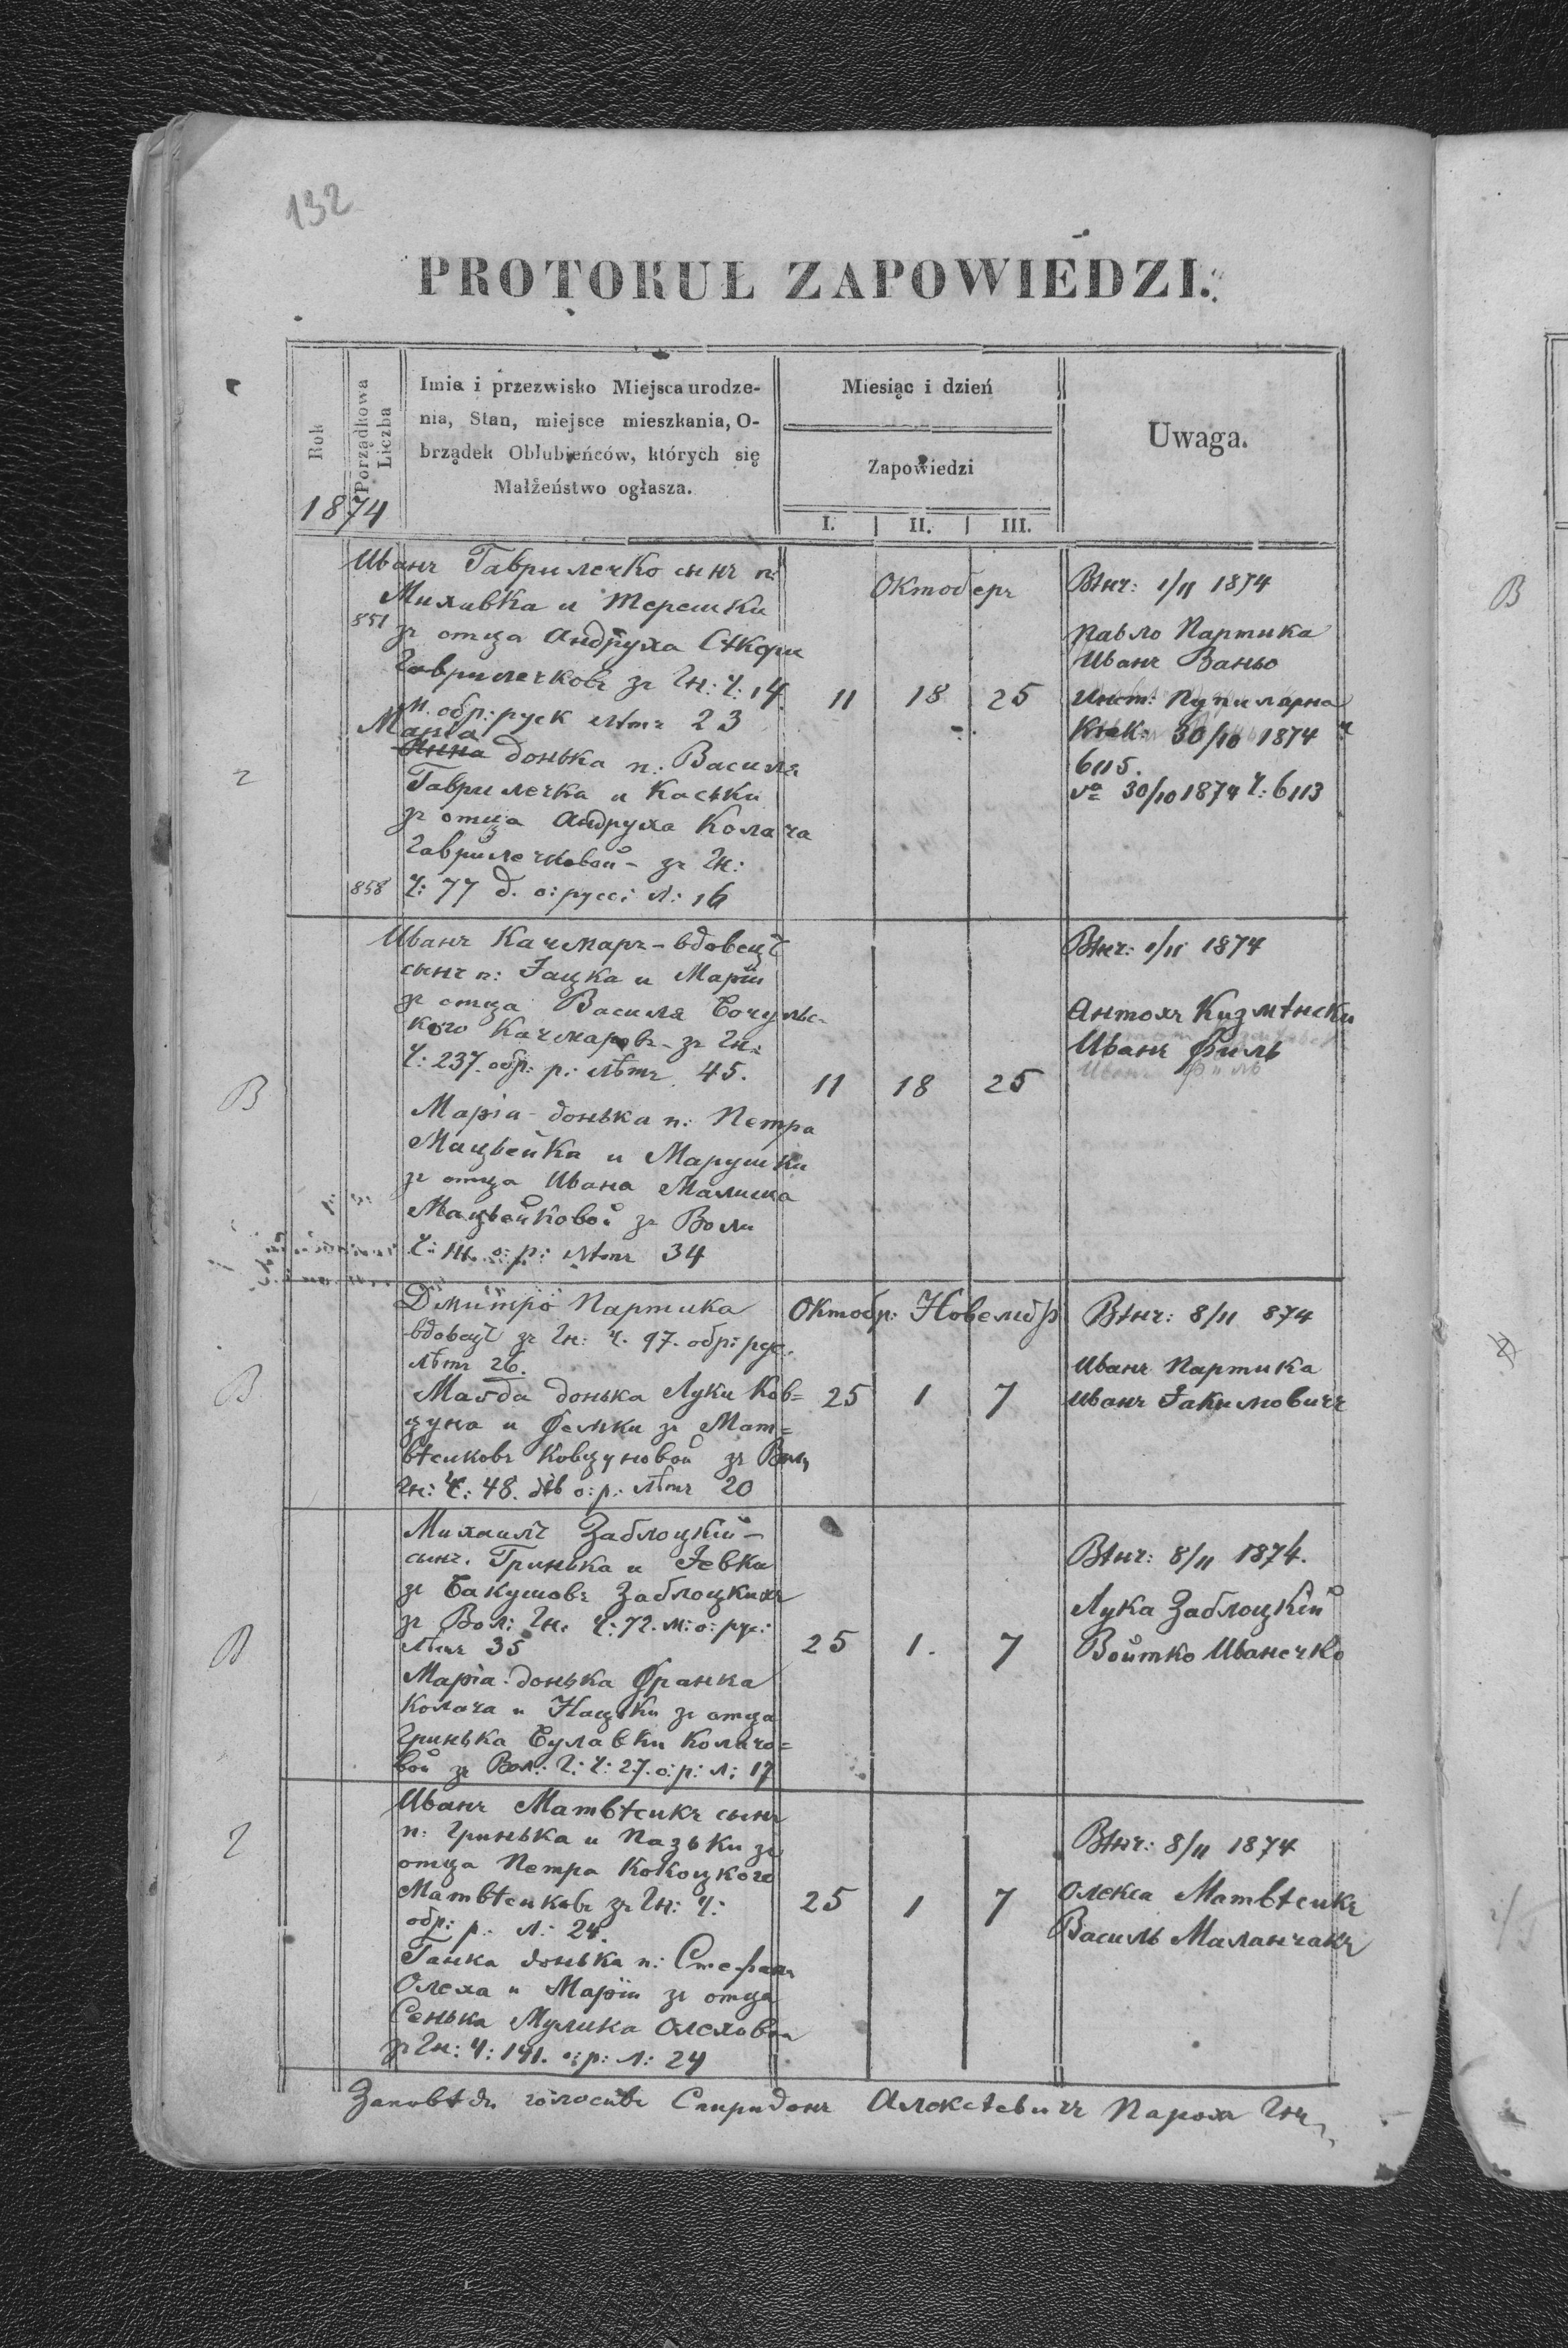 132
PROTOKUŁ ZAPOWIEDZI.
Rok
Porządkowa
Liczba
1874
Imie i przezwisko Miejsca urodze-
nia, Stan, miejsce mieszkania, O-
brządek Oblubieńców, których się
Małżeństwo ogłasza.
Miesiąc i dzień
Zapowiedzi
I. II. III.
Uwaga.
Иванъ Гаврилечко сынъ п:
Михивка и Терешки
851
зъ отца Андруха
Гаврилечковъ зъ Гн: Ч: 14.
м. обр: руск лѣтъ 23
Марія
Анна донька п: Василя
Гаврилечка и Каськи
зъ отца Андруха Колача
Гаврилечковой - зъ Гн:
858
Ч: 77 д. о: русс: л: 16
Октоберъ
11 18 25
Вѣнч: 1/11 1874
Павло Партика
Иванъ Ваньо
Инст: Пупиларна
30/10 1874 ч
6115.
30/10 1874 Ч: 6113
г
Иванъ Качмаръ - вдовецъ
сынъ п: Яцка и Маріи
зъ отца Василя Бочульс-
кого Качмаровъ - зъ Гн:
Ч: 237. обр: р: лѣтъ 45.
Марія - донька п: Петра
Мацьейка и Марушки
зъ отца Ивана Малиша
Мацьейковой зъ Воли
Ч: о: р: лѣтъ 34
11 18 25
Вѣнч: 1/11 1874
Антонъ Кузмѣнски
Иванъ Филь
В
Дмитро Партика
вдовецъ зъ Гн: Ч. 97. обр: рус.
лѣтъ 26.
Магда донька Луки Ков=
цуна и Фемки зъ Мат=
вѣсиковъ Ковцуновой зъ Воли
Гн: Ч: 48. дѣв о: р: лѣтъ 20
Октобр: Новембр
25 1 7
Вѣнч: 8/11 874
Иванъ Партика
Иванъ Якимовичъ
В
Михаилъ Заблоцкій -
сынъ. Гринька и Евки
зъ Бакушовъ Заблоцкихъ
зъ Вол: Гн. Ч: 72. м: о: рус:
лѣтъ 35
Марія донька Франка
Колача и Нацьки зъ отца
Гринька Булавки Колачо=
вой зъ Вол: Г: Ч: 27. о: р: л: 17
25 1. 7
Вѣнч: 8/11 1874.
Лука Заблоцкій
Войтко Иванечко
В
Иванъ Матвѣсикъ сынъ
п: Гринька и Пазьки зъ
отца Петра Кокоцкого
Матвѣсиковъ зъ Гн: Ч:
обр: р: л: 24.
Ганка донька п: Стефана
Олеха и Маріи зъ отца
Сенька Мулика Олехової
зъ Гн: Ч: 141. о: р: л: 24
25 1 7
Вѣнч: 8/11 1874
Олекса Матвѣсикъ
Василь Маланчакъ
Г
Заповѣди голосивъ Спиридонъ Алексѣевичъ Парохъ Гн
В